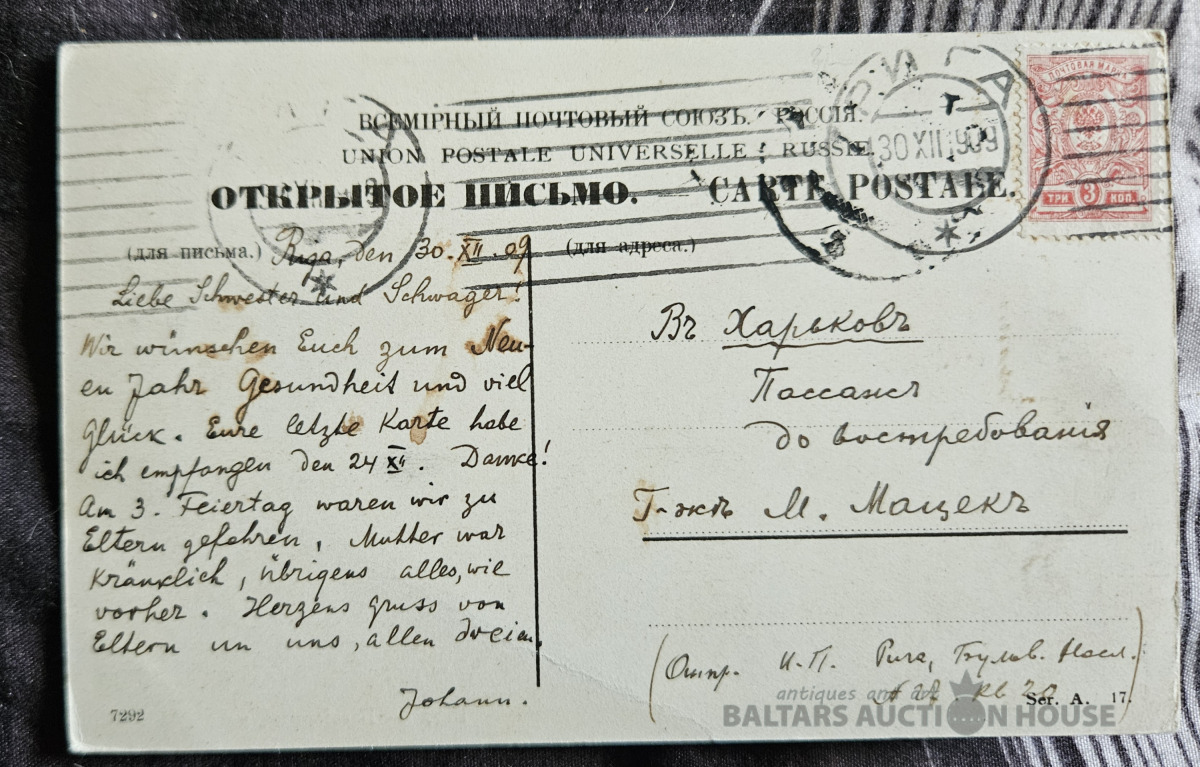 ВСЕМІРНЫЙ ПОЧТОВЫЙ СОЮЗЪ. РОССІЯ.
UNION POSTALE UNIVERSELLE. RUSSIE.
ОТКРЫТОЕ ПИСЬМО. — CARTE POSTALE.
РИГА
30 XII 1909
ПОЧТОВАЯ МАРКА
ТРИ 3 КОП.
(для письма.)
Riga, den 30. XII. 09
Liebe Schwester und Schwager!
Wir wünschen Euch zum Neu-
en Jahr Gesundheit und viel
Glück. Eure letzte Karte habe
ich empfangen den 24 XII. Danke!
Am 3. Feiertag waren wir zu
Eltern gefahren, Mutter war
kränklich, übrigens alles, wie
vorher. Herzens gruss von
Eltern un uns, allen dreien.
Johann.
7292
(для адреса.)
Въ Харьковъ
Пассажъ
до востребованія
Г-жѣ М. Мацекъ
(Отпр. И. П. Рига, Бульв. Насл.
Ser. A. 17.
antiques and art
BALTARS AUCTION HOUSE